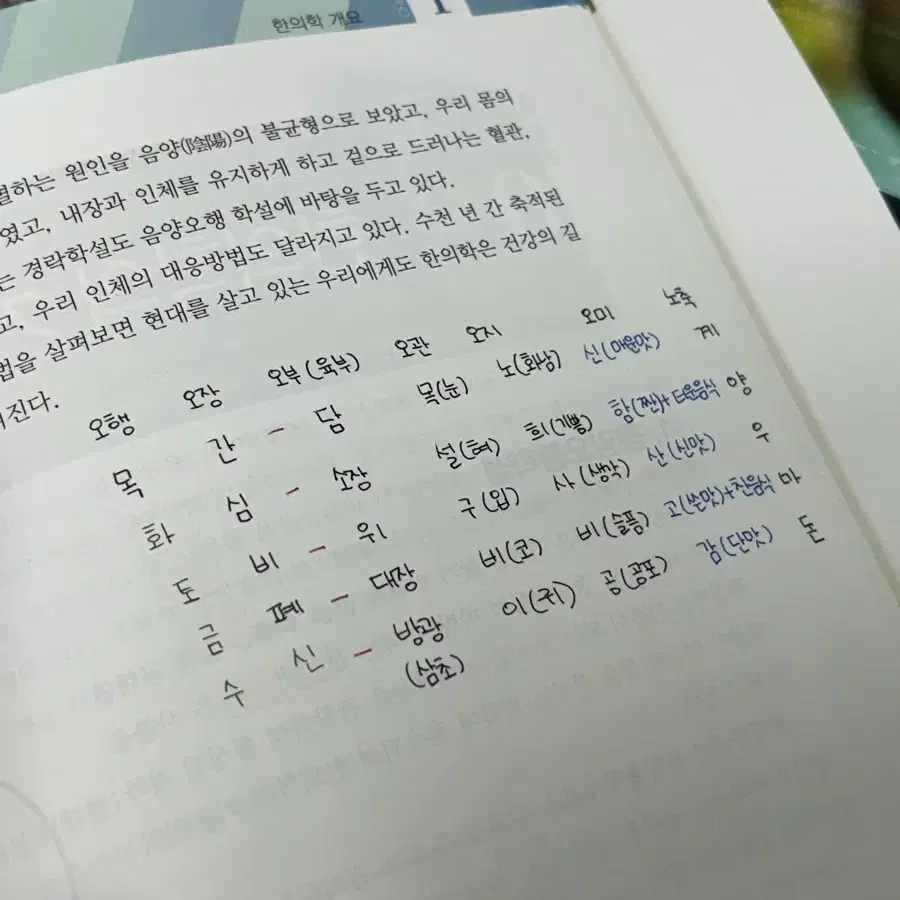 한의학 개요
하는 원인을 음양(陰陽)의 불균형으로 보았고, 우리 몸의
였고, 내장과 인체를 유지하게 하고 겉으로 드러나는 혈관,
는 경락학설도 음양오행 학설에 바탕을 두고 있다.
고, 우리 인체의 대응방법도 달라지고 있다. 수천 년 간 축적된
법을 살펴보면 현대를 살고 있는 우리에게도 한의학은 건강의 길
진다.
오행 오장 오부(육부) 오관 오지 오미 노축
목 간 - 담 목(눈) 노(화남) 신(매운맛) 계
화 심 - 소장 설(혀) 희(기쁨) 함(짠)+더운음식 양
토 비 - 위 구(입) 사(생각) 산(신맛) 우
금 폐 - 대장 비(코) 비(슬픔) 고(쓴맛)+찬음식 마
수 신 - 방광 이(귀) 공(공포) 감(단맛) 돈
(삼초)